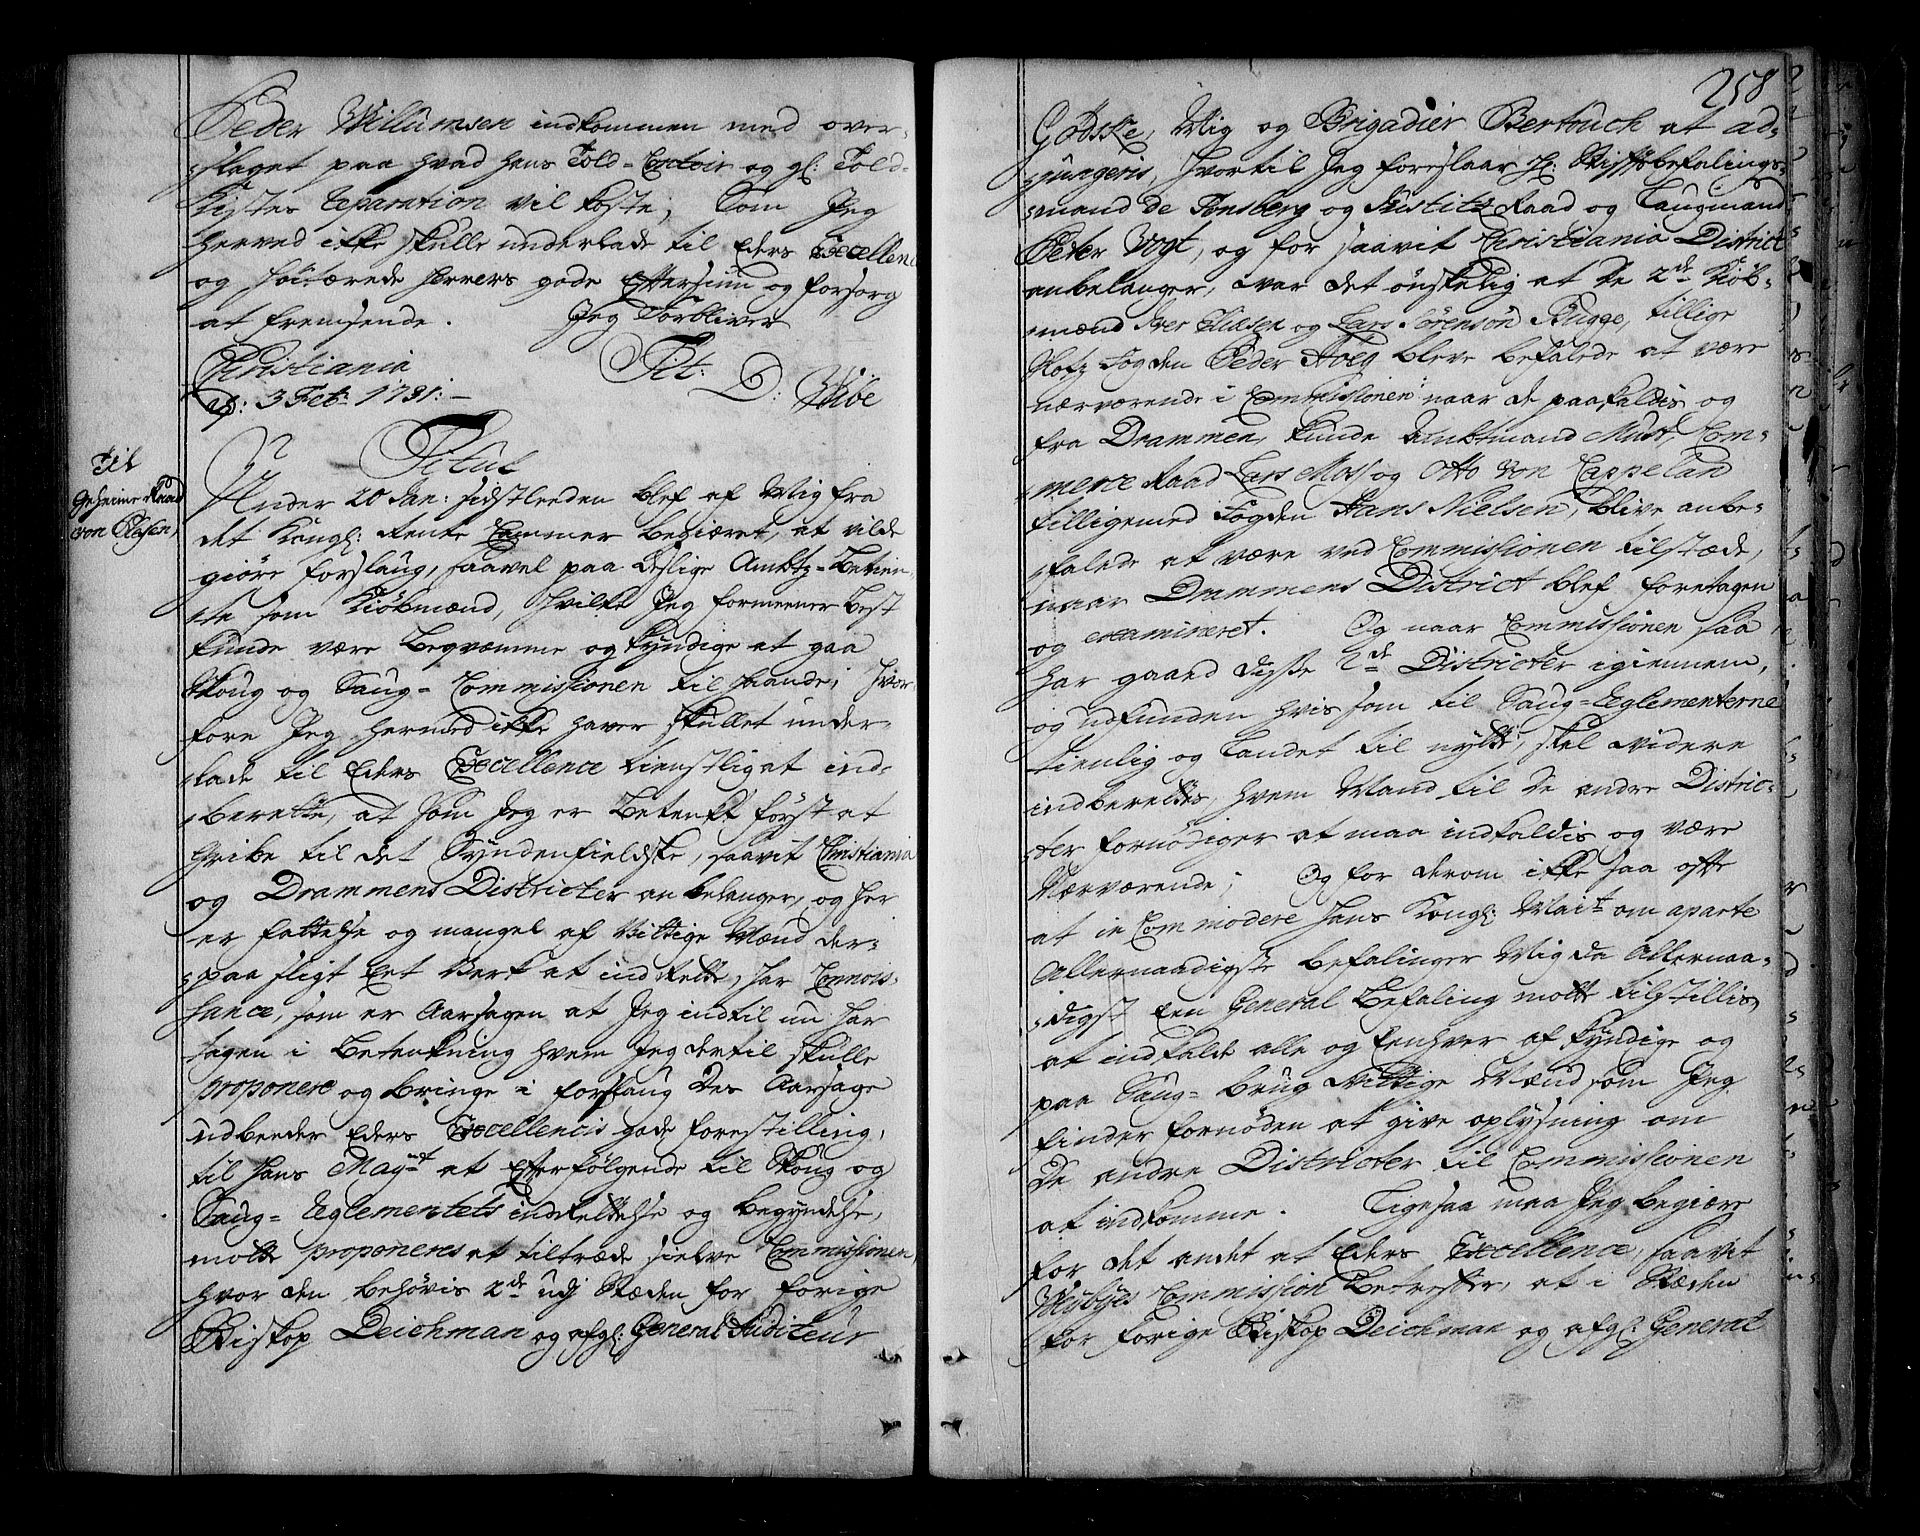 Peder Willumsen indkommen med over-
slaget paa hvad hans Told-Contoir og gl: Told-
Kistes Reparation vil koste, Som Jeg
herved ikke skulle underlade til Eders Excellence
og Höitærede Herrers gode Eftersiun og forsorg
at fremsende. Jeg Forbliver
Christiania Tit: D: Wibe
d: 3 Feb: 1731:-
Til
Geheime Raad
von Plesen,
Titul
Under 20 Jan: sidstleeden blef af Mig fra
det Kongl: Rente Cammer begiæret, at vilde
giöre forslaug, saavel paa deslige Ambtz-Betien-
te som Kiöbmænd, hvilke Jeg formeener best
kunde være beqvæmme og kyndige at gaa
Skoug og Saug-Commissionen til haande; hvor-
fore Jeg hermed ikke haver skullet under-
lade til Eders Excellence tienstligst ind-
berette, at som Jeg er betenkt först at
gribe til det Syndenfieldske, saavit Christiania
og Drammens Districter anbelanger, og her
er fattelse og mangel af Vittige Mænd der-
paa sligt Et Verk at indrette, har Connois-
sance, som er Aarsagen at Jeg indtil nu har
tagen i betenkning hvem Jeg dertil skulle
proponere og bringe i forslaug Des Aarsage
udbeeder Eders Excellencis gode forestilling,
til Hans Mayt at Efterfölgende til Skoug og
Saug-Reglementets indrettelse og begyndelse,
motte proponeres at tiltræde selve Commissionen,
hvor den behövis 2de udj Stæden for forige
Biskop Deichman og afgl: General Auditeur
258
Godske, Mig og Brigadier Bertouch at ad-
jungeris, hvortil Jeg foreslaar Hr: Stiftsbefalings-
mand de Tonsberg og Justitz Raad og Laugmand
Peter Vogt, og for saavit Christiania District
anbelanger, var det önskelig at de 2de Kiöb-
mænd Iver Eliesen og Lars Sörensön Bugge, tillige
Fogden Peder Hoeg bleve befalede at være
nærværende i Commissionen naar de paakaldis og
fra Drammen, kunde Ambtmand Must, Com-
merce Raad Lars Moss og Otto von Cappelan
tilligemed Fogden Hans Nielsen, blive anbe-
falede at være ved Commissionen tilstæde,
naar Drammens District blef foretagen
og examineret. Og naar Commissionen saa
har gaaed disse 2de Districter igiennem,
og udfunden hvis som til Saug-Reglementerne
tienlig og Landet til nytte, skal videre
indberettes, hvem Mand til de andre Distric-
ter fornödiger at maa indkaldis og være
Nærværende; Og for derom ikke saa ofte
at incommodere Hans Kongl: Mait om aparte
Allernaadigste befalinger Mig da Allernaa-
digst Een General Befaling motte tilstillis
at indkalde alle og Eenhver af Kyndige og
paa Saug-brug Vittige Mænd som Jeg
finder fornöden at give oplysning om
De andre Districter til Commissionen
at indkomme. Ligesaa maa Jeg begiære
for det andet at Eders Excellence, saavit
Nybyes Commission betreffer, at i Stæden
for forige Biskop Deichman og afgl: General